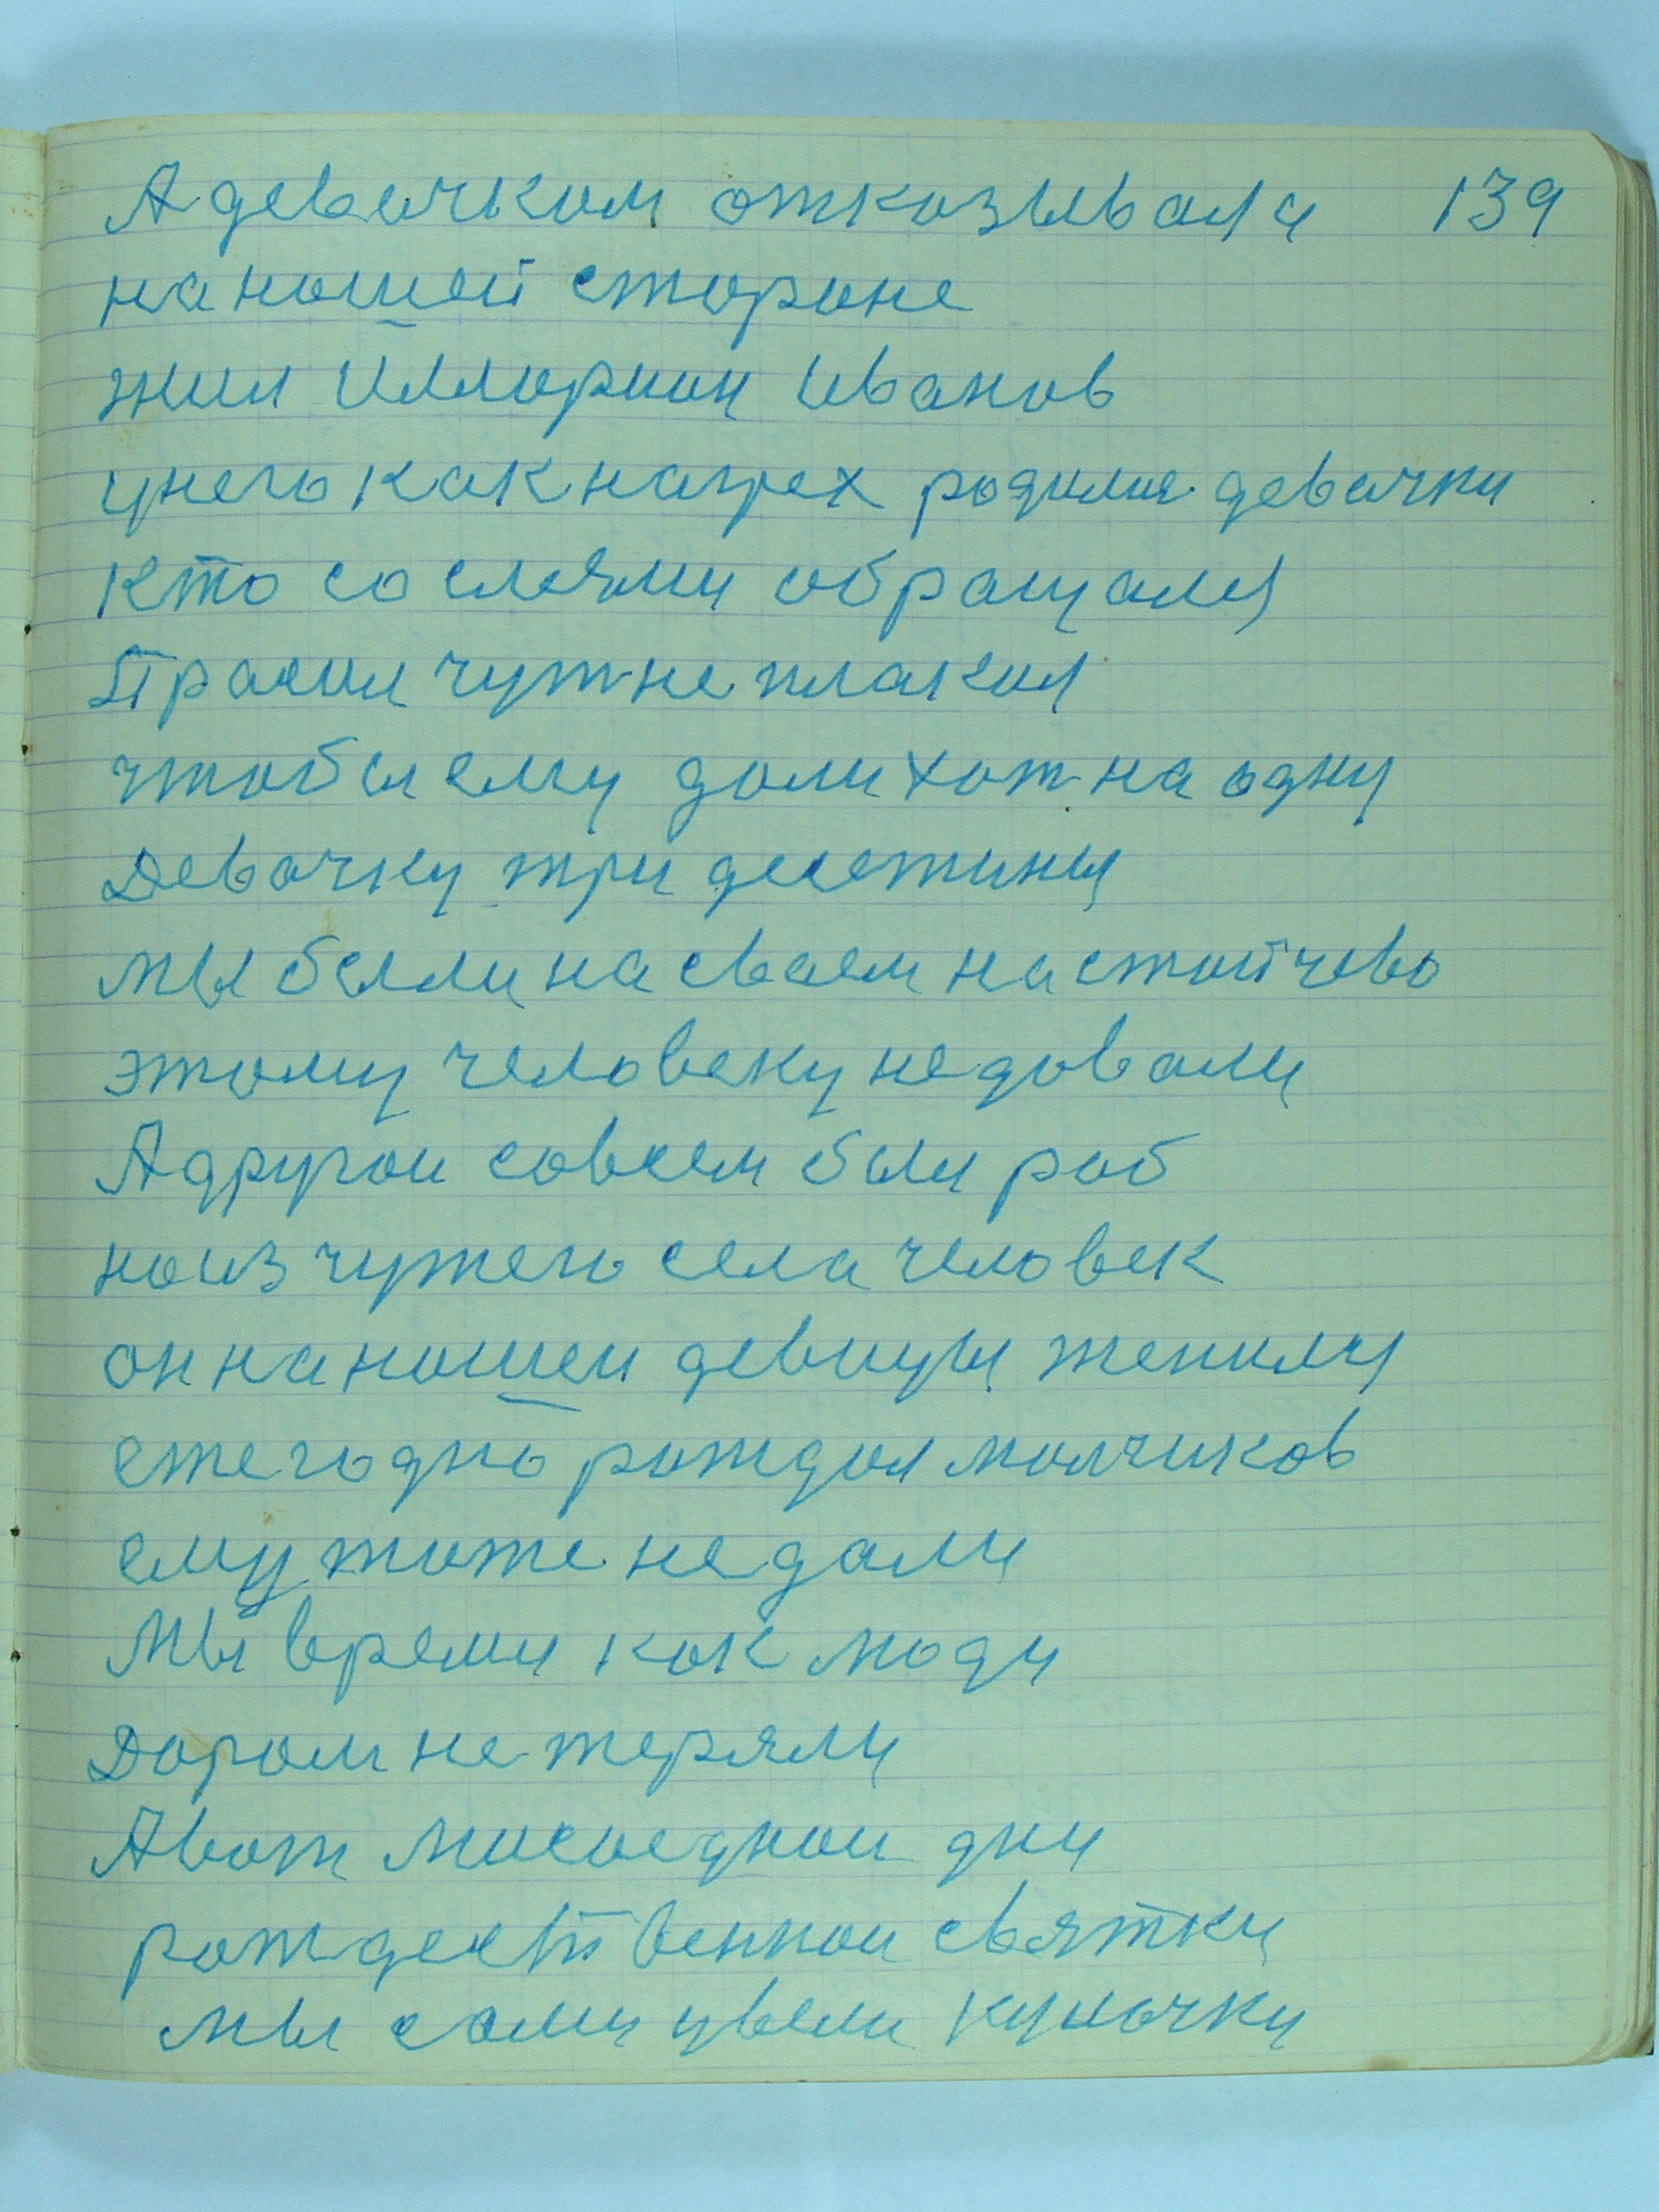 А девачкам отказывали 139
на нашей стороне
жил Илларион Иванов
унего как нагрех родилис девачки
кто со слезями обращался
Прасил чут не плакал
чтобы ему дали хот на одну
Девачку три десетины
мы были на сваем настойчево
этому человеку не довали
А другои совсем был роб
но из чужего села человек
он на нашеи девицы женился
ежегодно рождал малчиков
ему тоже не дали
Мы время как люди
Даром не теряли
А вот мисоеднои дни
рождественнои святки
мы сами увели кулачки